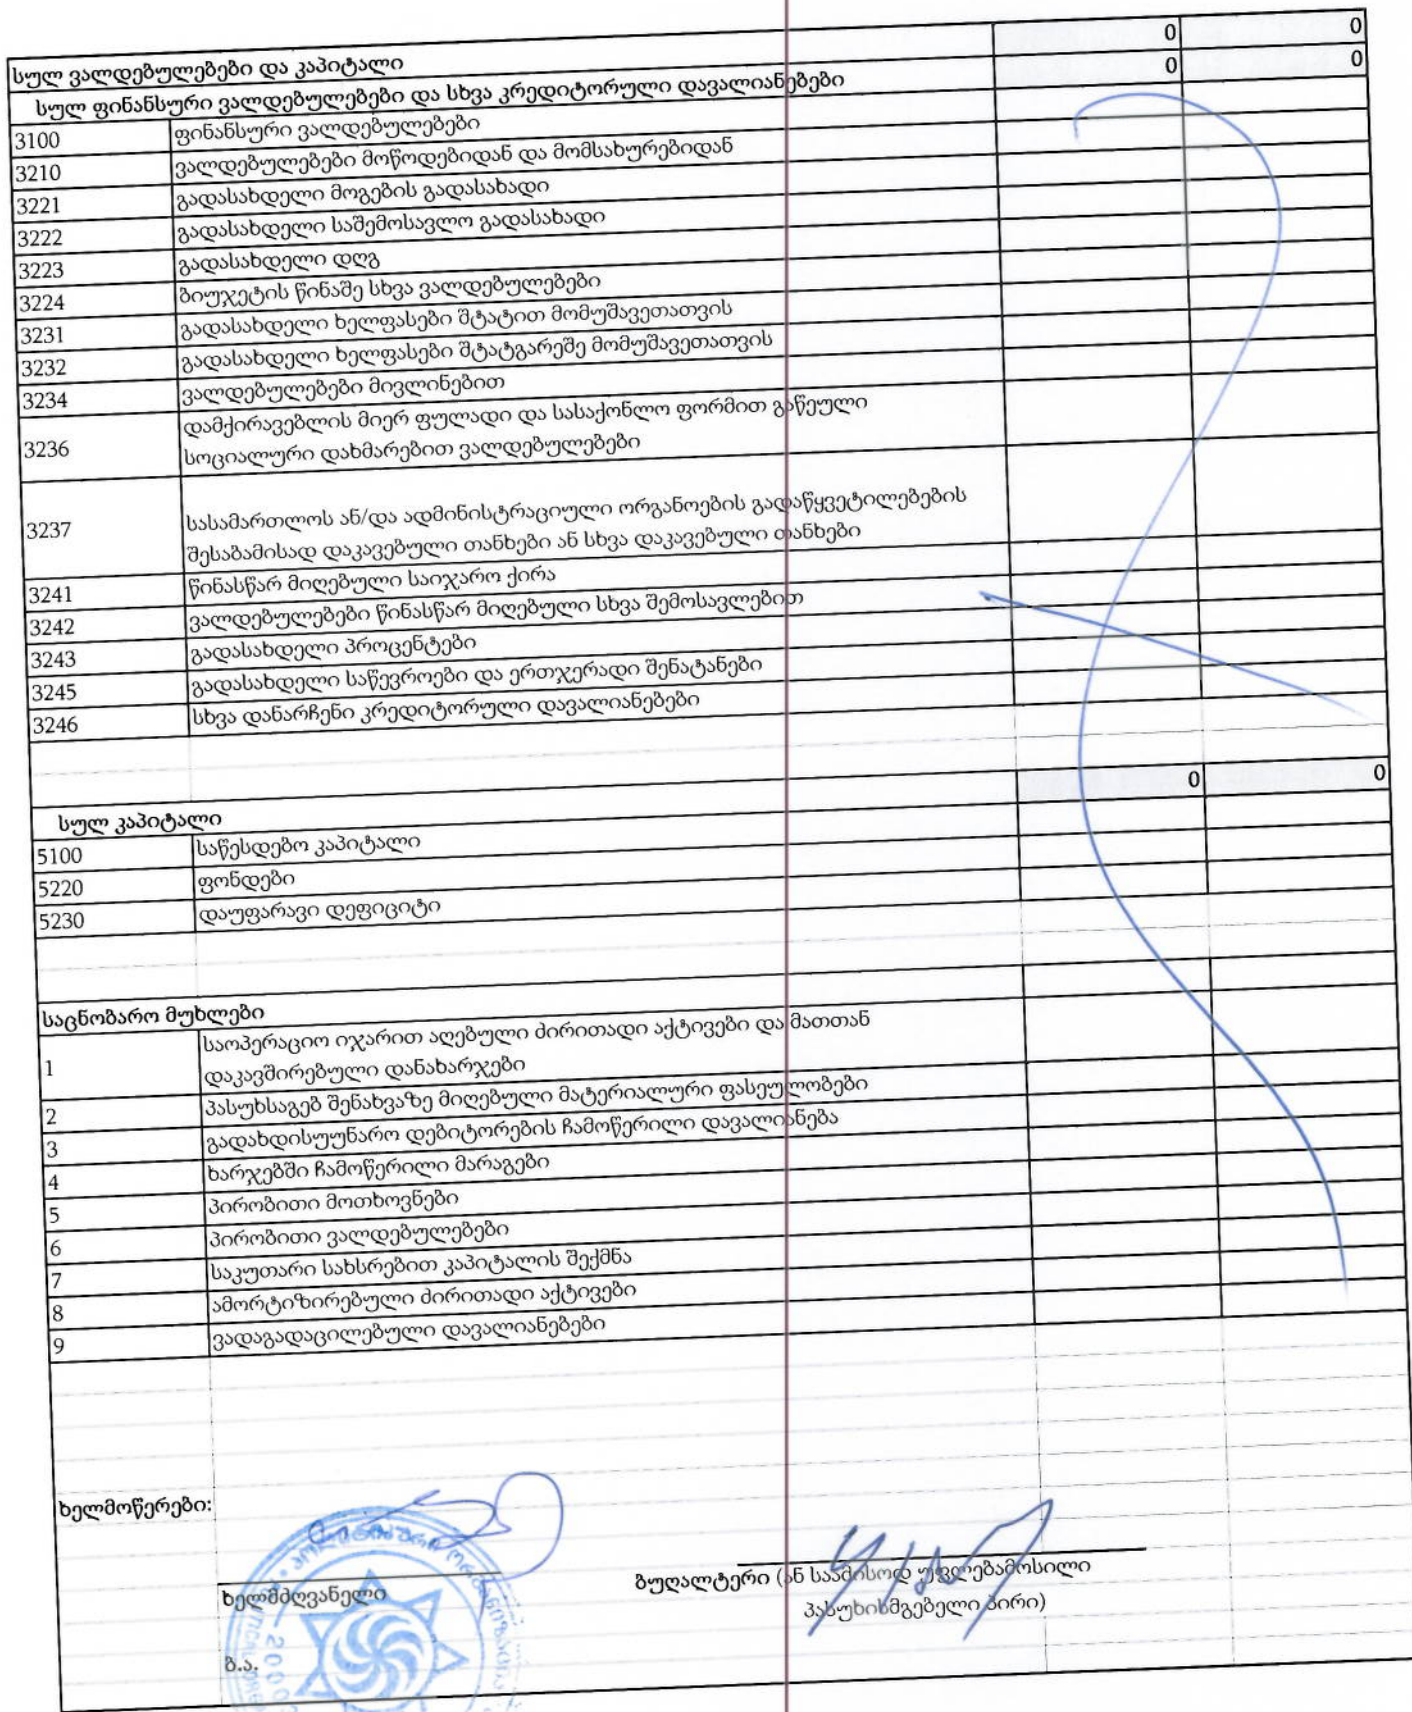 სულ ვალდებულებები და კაპიტალი 0 0
სულ ფინანსური ვალდებულებები და სხვა კრედიტორული დავალიანებები 0 0
3100 ფინანსური ვალდებულებები
3210 ვალდებულებები მოწოდებიდან და მომსახურებიდან
3221 გადასახდელი მოგების გადასახადი
3222 გადასახდელი საშემოსავლო გადასახადი
3223 გადასახდელი დღგ
3224 ბიუჯეტის წინაშე სხვა ვალდებულებები
3231 გადასახდელი ხელფასები შტატით მომუშავეთათვის
3232 გადასახდელი ხელფასები შტატგარეშე მომუშავეთათვის
3234 ვალდებულებები მივლინებით
3236 დამქირავებლის მიერ ფულადი და სასაქონლო ფორმით გაწეული
სოციალური დახმარებით ვალდებულებები
3237 სასამართლოს ან/და ადმინისტრაციული ორგანოების გადაწყვეტილებების
შესაბამისად დაკავებული თანხები ან სხვა დაკავებული თანხები
3241 წინასწარ მიღებული საიჯარო ქირა
3242 ვალდებულებები წინასწარ მიღებული სხვა შემოსავლებით
3243 გადასახდელი პროცენტები
3245 გადასახდელი საწევროები და ერთჯერადი შენატანები
3246 სხვა დანარჩენი კრედიტორული დავალიანებები
სულ კაპიტალი 0 0
5100 საწესდებო კაპიტალი
5220 ფონდები
5230 დაუფარავი დეფიციტი
საცნობარო მუხლები
1 საოპერაციო იჯარით აღებული ძირითადი აქტივები და მათთან
დაკავშირებული დანახარჯები
2 პასუხსაგებ შენახვაზე მიღებული მატერიალური ფასეულობები
3 გადახდისუუნარო დებიტორების ჩამოწერილი დავალიანება
4 ხარჯებში ჩამოწერილი მარაგები
5 პირობითი მოთხოვნები
6 პირობითი ვალდებულებები
7 საკუთარი სახსრებით კაპიტალის შექმნა
8 ამორტიზირებული ძირითადი აქტივები
9 ვადაგადაცილებული დავალიანებები
ხელმოწერები:
ხელმძღვანელი
ბუღალტერი (ან საამისოდ უფლებამოსილი
პასუხისმგებელი პირი)
ბ.ა.